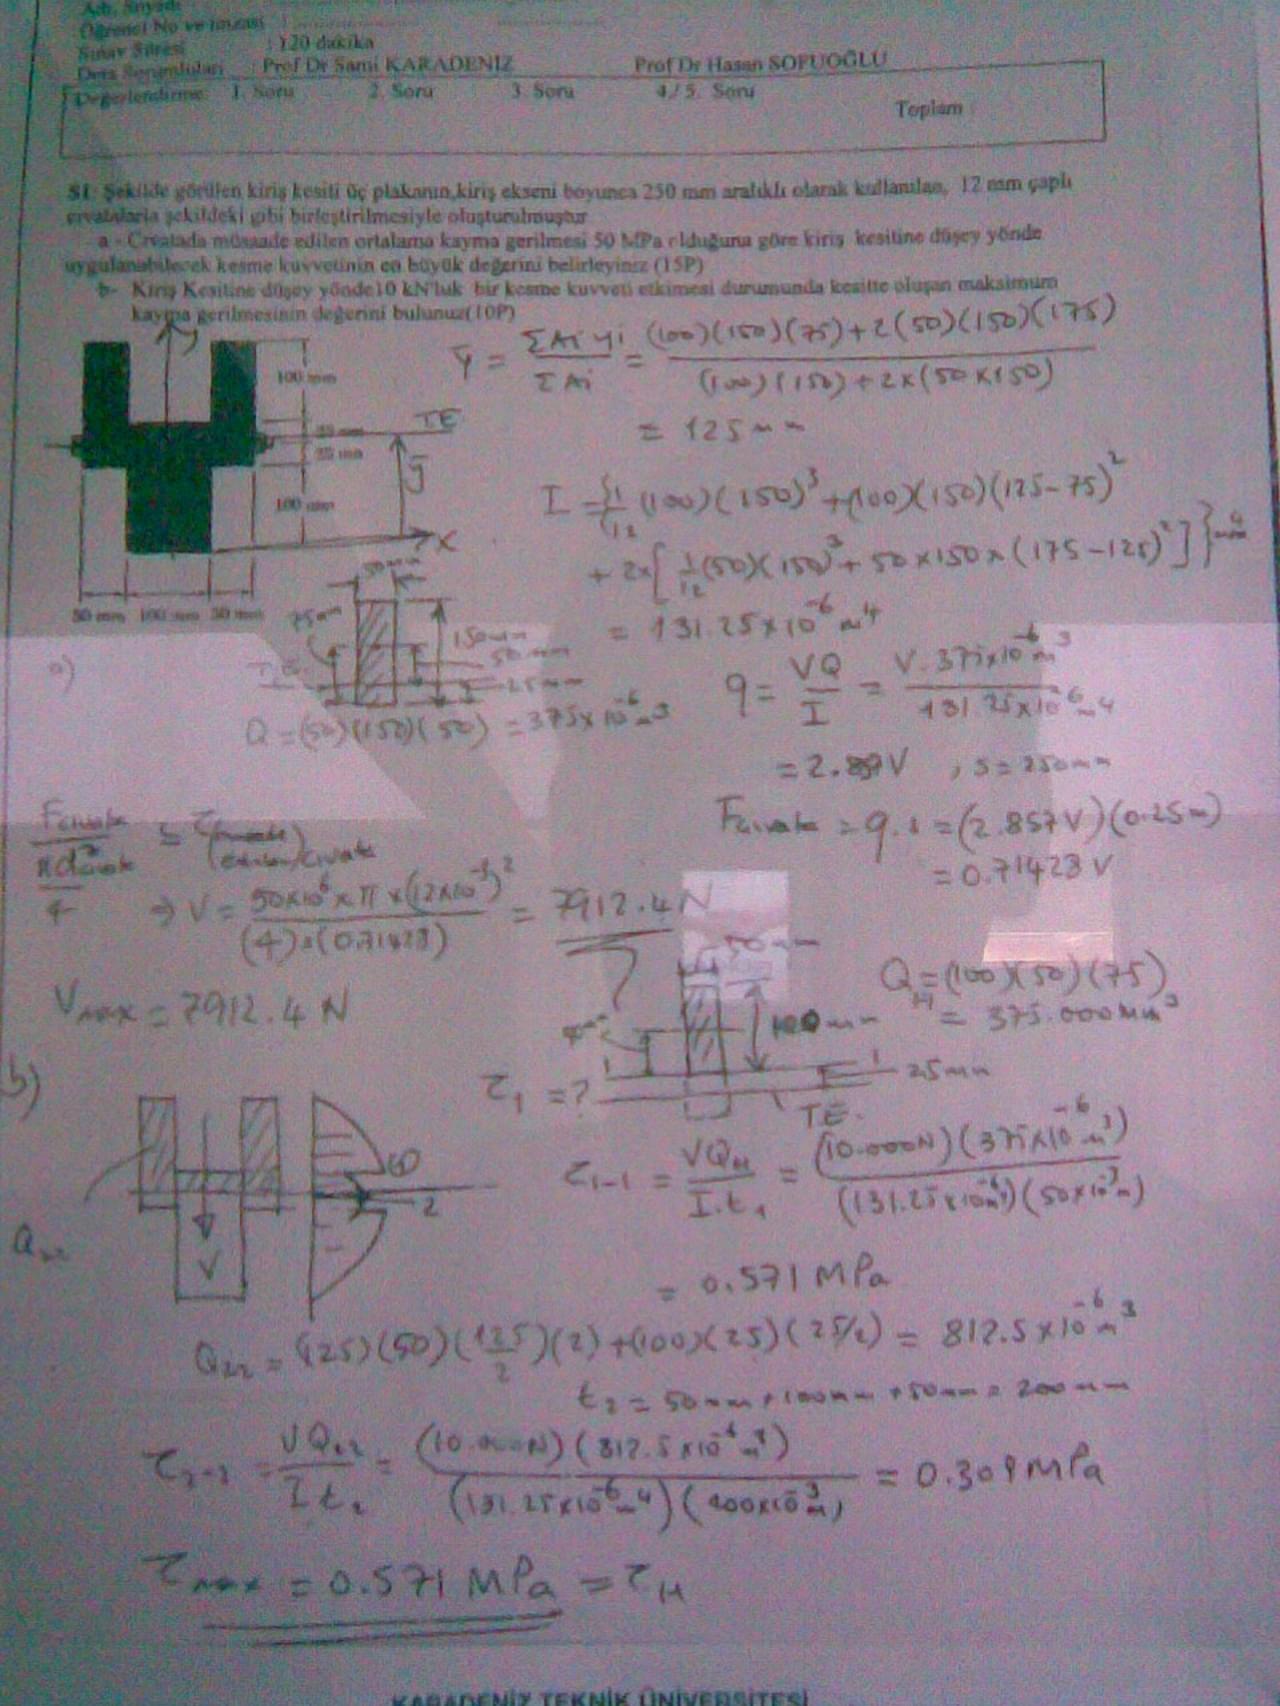 Adı, Soyadı
Öğrenci No ve İmzası :
Sınav Süresi : 120 dakika
Ders Sorumluları : Prof Dr Sami KARADENİZ Prof Dr Hasan SOFUOĞLU
Değerlendirme 1. Soru 2. Soru 3. Soru 4 / 5. Soru
Toplam :
S1: Şekilde görülen kiriş kesiti üç plakanın,kiriş ekseni boyunca 250 mm aralıklı olarak kullanılan, 12 mm çaplı
cıvatalarla şekildeki gibi birleştirilmesiyle oluşturulmuştur
a - Cıvatada müsaade edilen ortalama kayma gerilmesi 50 MPa olduğuna göre kiriş kesitine düşey yönde
uygulanabilecek kesme kuvvetinin en büyük değerini belirleyiniz (15P)
b- Kiriş Kesitine düşey yönde10 kN'luk bir kesme kuvveti etkimesi durumunda kesitte oluşan maksimum
kayma gerilmesinin değerini bulunuz(10P)
y
100 mm
25 mm
25 mm
100 mm
TE
ȳ
x
50 mm 100 mm 50 mm
ȳ = ΣAi yi / ΣAi = (100)(150)(75)+2(50)(150)(175) / (100)(150)+2x(50x150)
= 125 mm
I = {1/12 (100)(150)³ + (100)(150)(125-75)²
+ 2x[1/12(50)(150)³ + 50x150x(175-125)²]} mm⁴
= 131.25x10⁻⁶ m⁴
a)
50mm
75mm
150mm
50mm
25mm
T.E.
Q = (50)(150)(50) = 375x10⁻⁶ m³
q = VQ / I = V.375x10⁻⁶ m³ / 131.25x10⁻⁶ m⁴
= 2.857V , s = 250mm
Fcivata = q.s = (2.857V)(0.25m)
= 0.71428 V
Fcivata / (πd²civata / 4) = τ(müsade edilen)civata
⇒ V = 50x10⁶ x π x (12x10⁻³)² / (4)x(0.71428) = 7912.4 N
Vmax = 7912.4 N
50mm
100mm
25mm
TE.
Q₁₁ = (100)(50)(75)
= 375.000 mm³
b)
τ₁ = ?
V
1
2
τ₁₋₁ = VQ₁₁ / I.t₁ = (10.000N)(375x10⁻⁶ m³) / (131.25x10⁻⁶ m⁴)(50x10⁻³ m)
= 0.571 MPa
Q₂₂
Q₂₂ = (125)(50)(125/2)(2)+(100)(25)(25/2) = 812.5x10⁻⁶ m³
t₂ = 50mm + 100mm + 50mm = 200mm
τ₂₋₂ = VQ₂₂ / I t₂ = (10.000N)(812.5x10⁻⁶ m³) / (131.25x10⁻⁶ m⁴)(200x10⁻³ m) = 0.309 MPa
τmax = 0.571 MPa = τ₁₁
KARADENİZ TEKNİK ÜNİVERSİTESİ